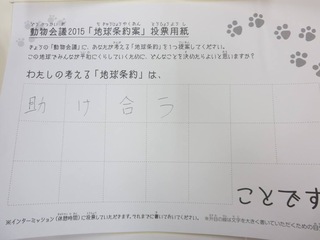 動物会議2015「地球条約案」投票用紙
きょうの「動物会議」に、あなたが考える「地球条約」を1つ提案してください。
この地球でみんなが平和にくらしていくために、どんなことを決めたらよいと思いますか?
わたしの考える「地球条約」は、
助け合う
ですこと
※インターミッション(休憩時間)に投票していただきます。それまでに書いておいてください。